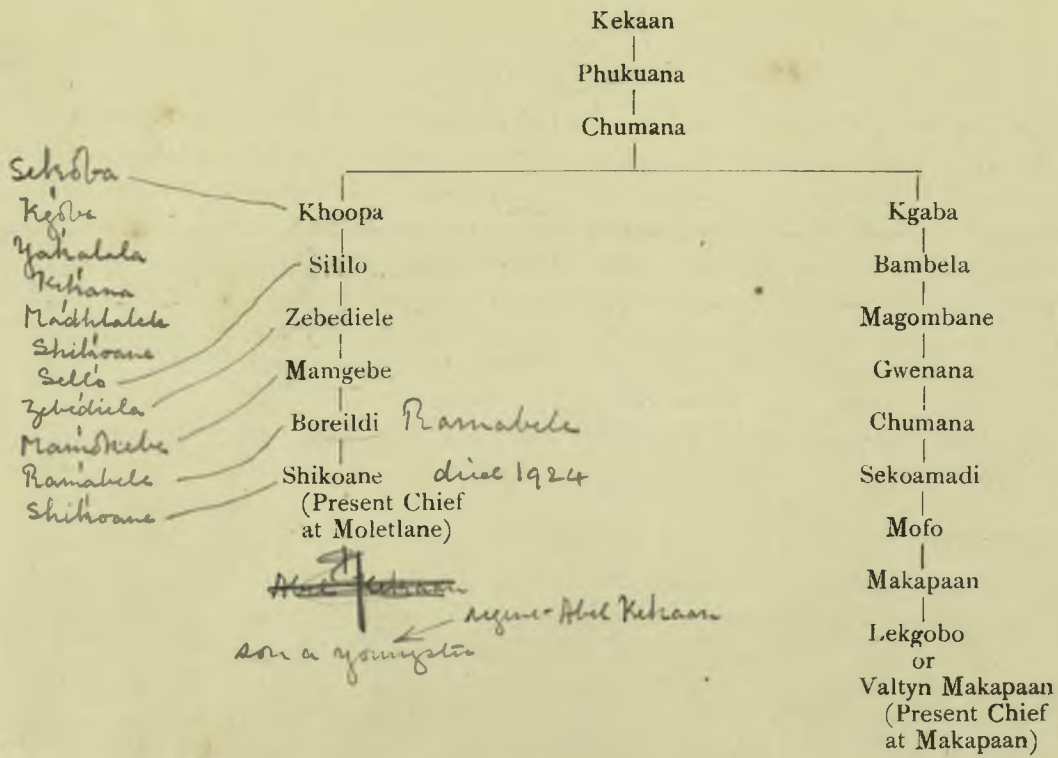 Kekaan
Phukuana
Chumana
Sekoba
Kgoba
Yakalala
Kekana
Madhlalele
Shikoane
Sello
Zebediela
Mamokebe
Ramabele
Shikoane
Khoopa
Sililo
Zebediele
Mamgebe
Boreildi Ramabele
Shikoane died 1924
(Present Chief
at Moletlane)
Abel Kekaan
regent - Abel Kekaan
son a youngster
Kgaba
Bambela
Magombane
Gwenana
Chumana
Sekoamadi
Mofo
Makapaan
Lekgobo
or
Valtyn Makapaan
(Present Chief
at Makapaan)